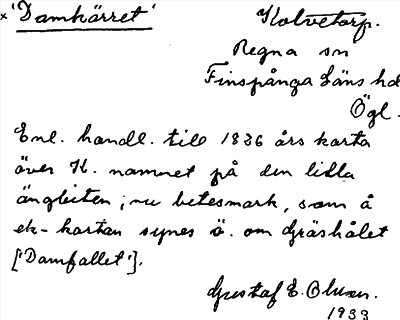 × 'Damkärret'
Kolvetorp.
Regna sn
Finspånga läns hd
Ögl.
Enl. handl. till 1836 års karta
över K. namnet på den lilla
ängbiten, nu betesmark, som å
ek-kartan synes ö. om Gräshålet
['Damfallet'].
Gustaf E. Olsson.
1933